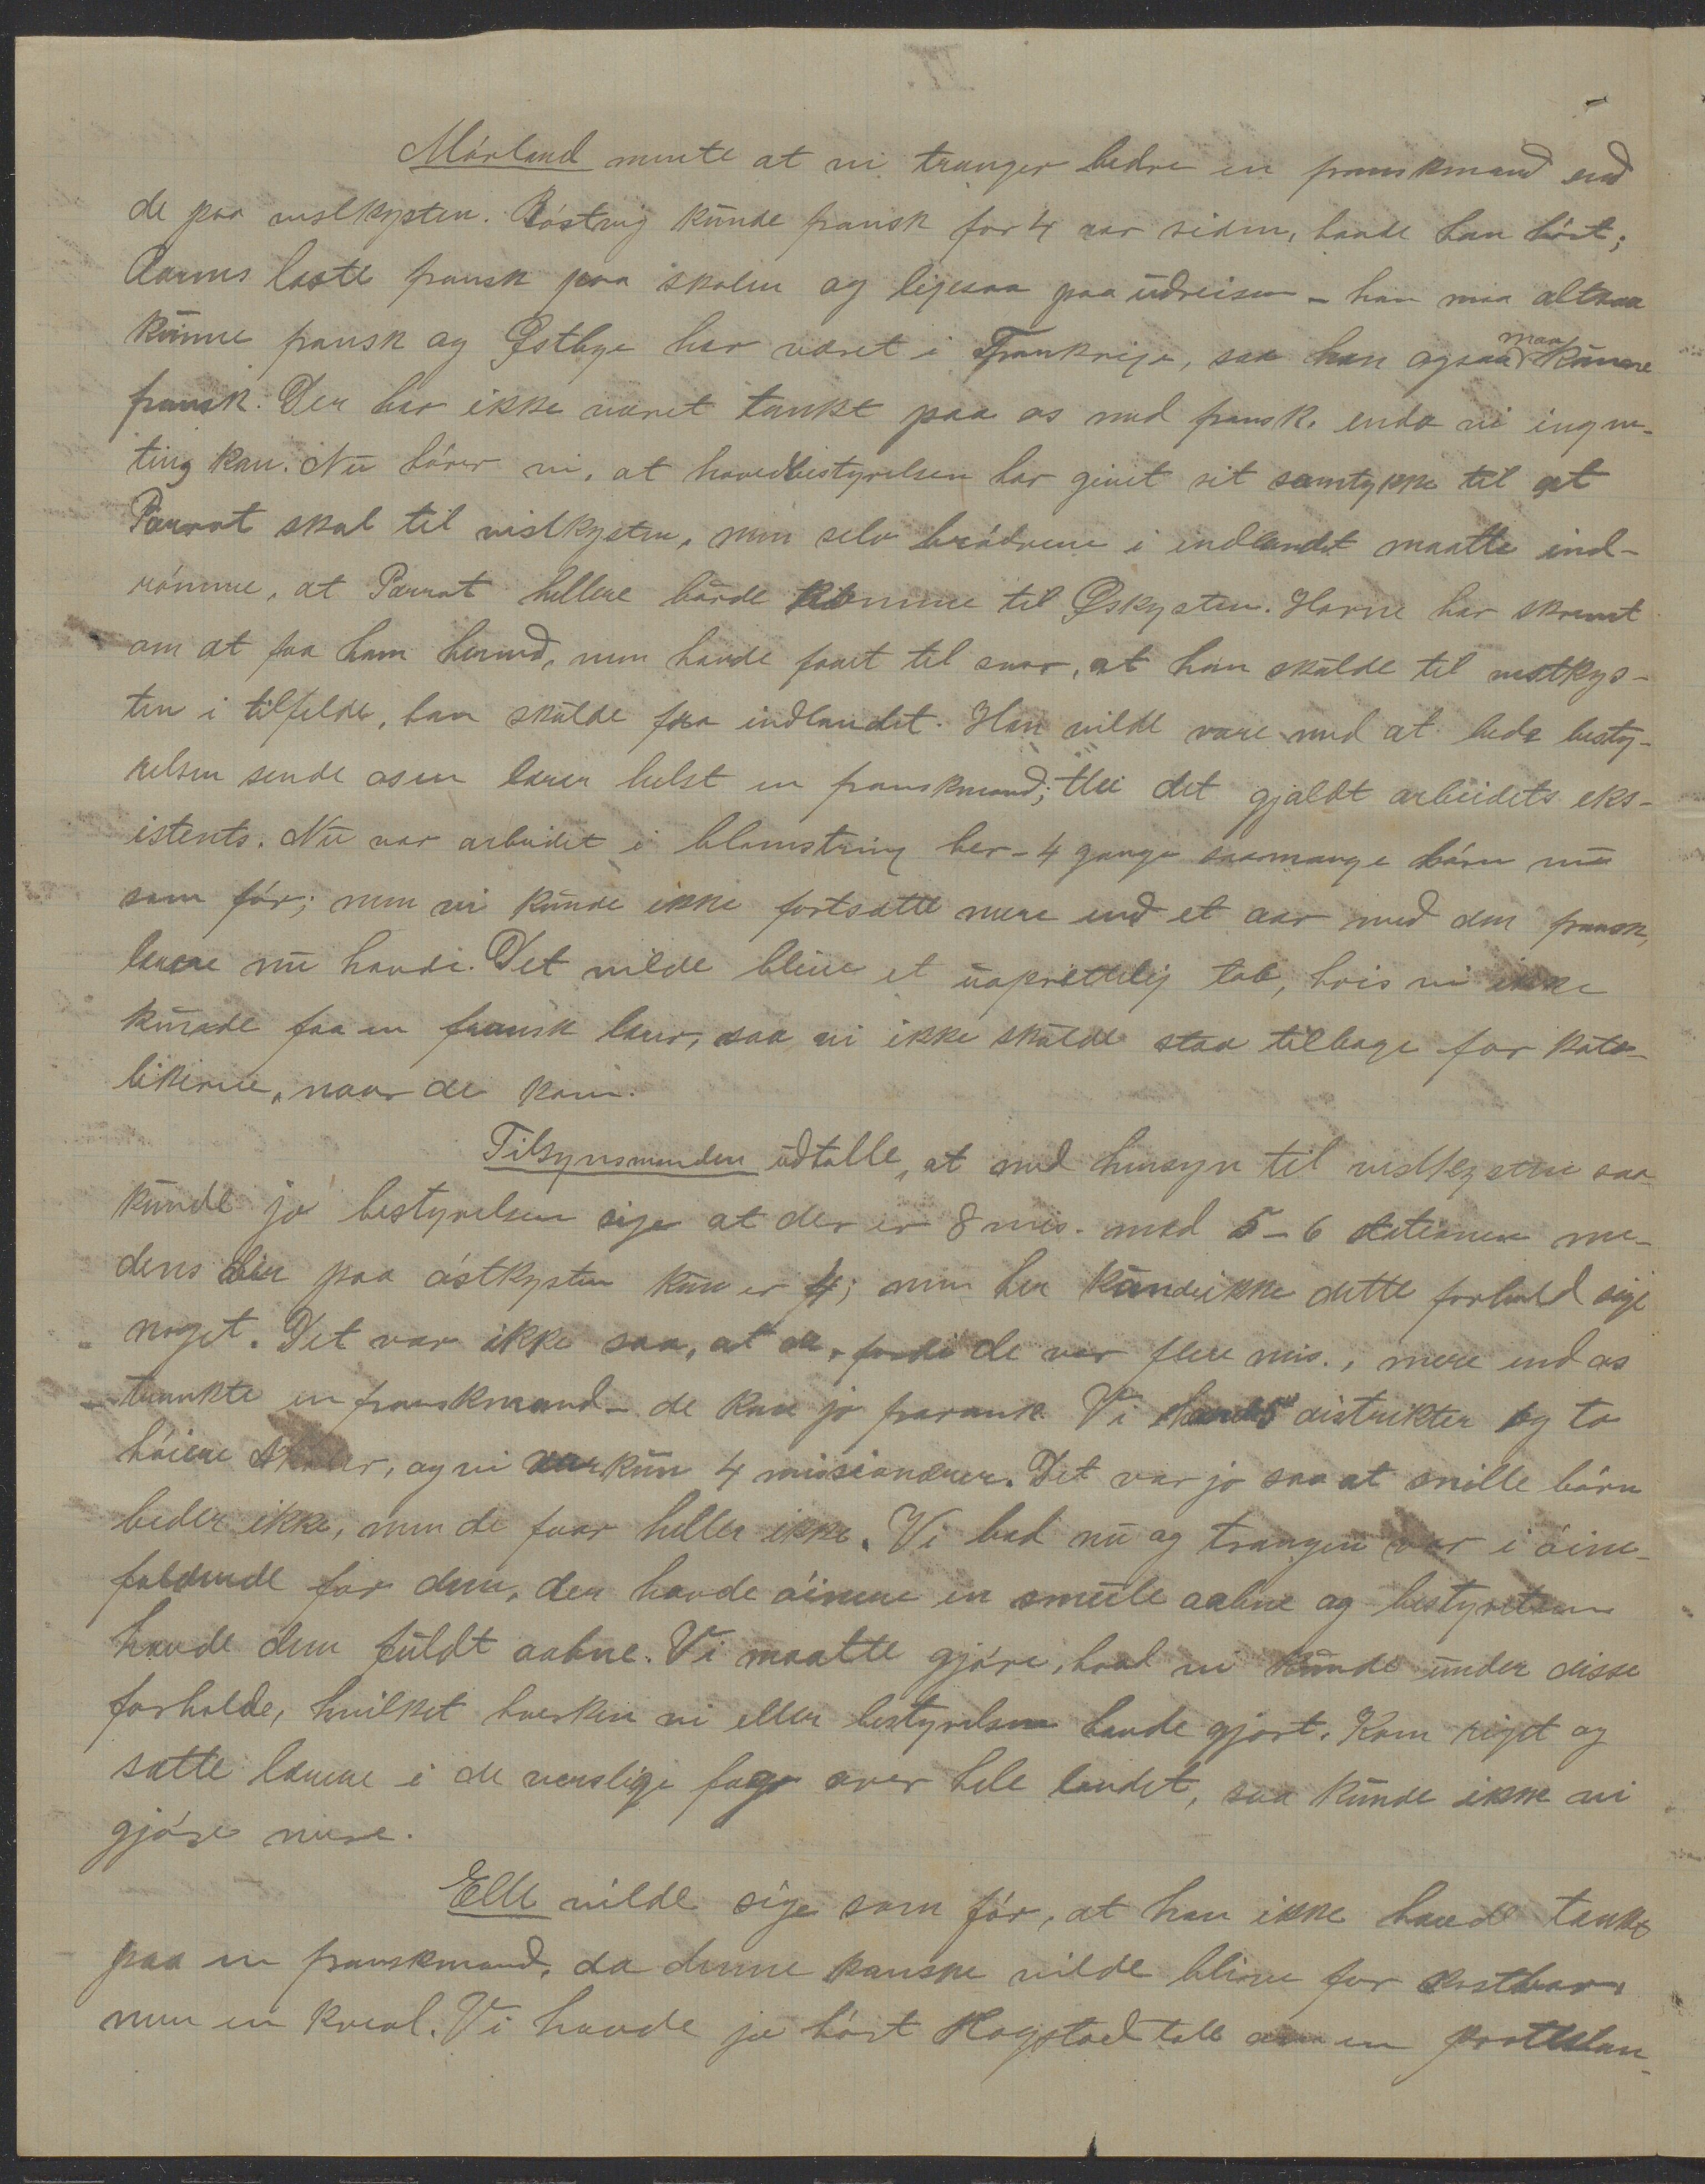 Mórland mente at vi trænger bedre en franskmand end
de paa vestkysten. Röstvig kunde fransk for 4 aar siden, havde han hört;
Aarnes læste fransk paa skolen og ligesaa paa udreisen - han maa altsaa
kunne fransk og Østbye har været i Frankrige, saa han ogsaa maa kunne
fransk. Der har ikke været tænkt paa os med fransk, enda vi ingen-
ting kan. Nu hörer vi, at hovedbestyrelsen har givet sit samtykke til at
Parrot skal til vestkysten, men selv brödrene i indlandet maatte ind-
römme, at Parrot hellere burde komme til Øskysten. Horne har skrevet
om at faa ham herned, men havde faaet til svar, at han skulde til vestkys-
ten i tilfelde, han skulde fra indlandet. Han vilde være med at bede besty-
relsen sende os en lærer helst en franskmand; thi det gjaldt arbeidets eks-
istents. Nu var arbeidet i blomstring her - 4 gange saamange börn nu
som för; men vi kunde ikke fortsætte mere end et aar med den fransk,
lærere nu havde. Det vilde blive et uoprettelig tab, hvis vi ikke
kunde faa en fransk lærer, saa vi ikke skulde staa tilbage for kato-
likerne, naar de kom.
Tilsynsmanden udtalte, at med hensyn til vestkysten saa
kunde jo bestyrelsen sige at der er 8 mis. med 5-6 stationer me-
dens her paa östkysten kun er 4; men her kunde ikke dette forhold sige
noget. Det var ikke saa, at de, fordi de var flere mis., mere end os
trænkte en franskmand - de kan jo fransk. Vi havde 5 distrikter og to
höiere skoler, og vi var kun 4 missionærer. Det var jo saa at snille börn
beder ikke, men de faar heller ikke. Vi bad nu og trangen var i öine-
faldende for dem, der havde öinene en smule aabne og bestyrelsen
havde dem fuldt aabne. Vi maatte gjöre, hvad vi kunde under disse
forholde, hvilket hverken vi eller bestyrelsen havde gjort. Kom riget og
satte lærere i de verslige fage over hele landet, saa kunde ikke vi
gjöre mere.
Elle vilde sige som för, at han ikke havde tænkt
paa en franskmand, da denne kanske vilde blive for kostbar,
men en kreol. Vi havde jo hört Rogstad tale om en protestan-